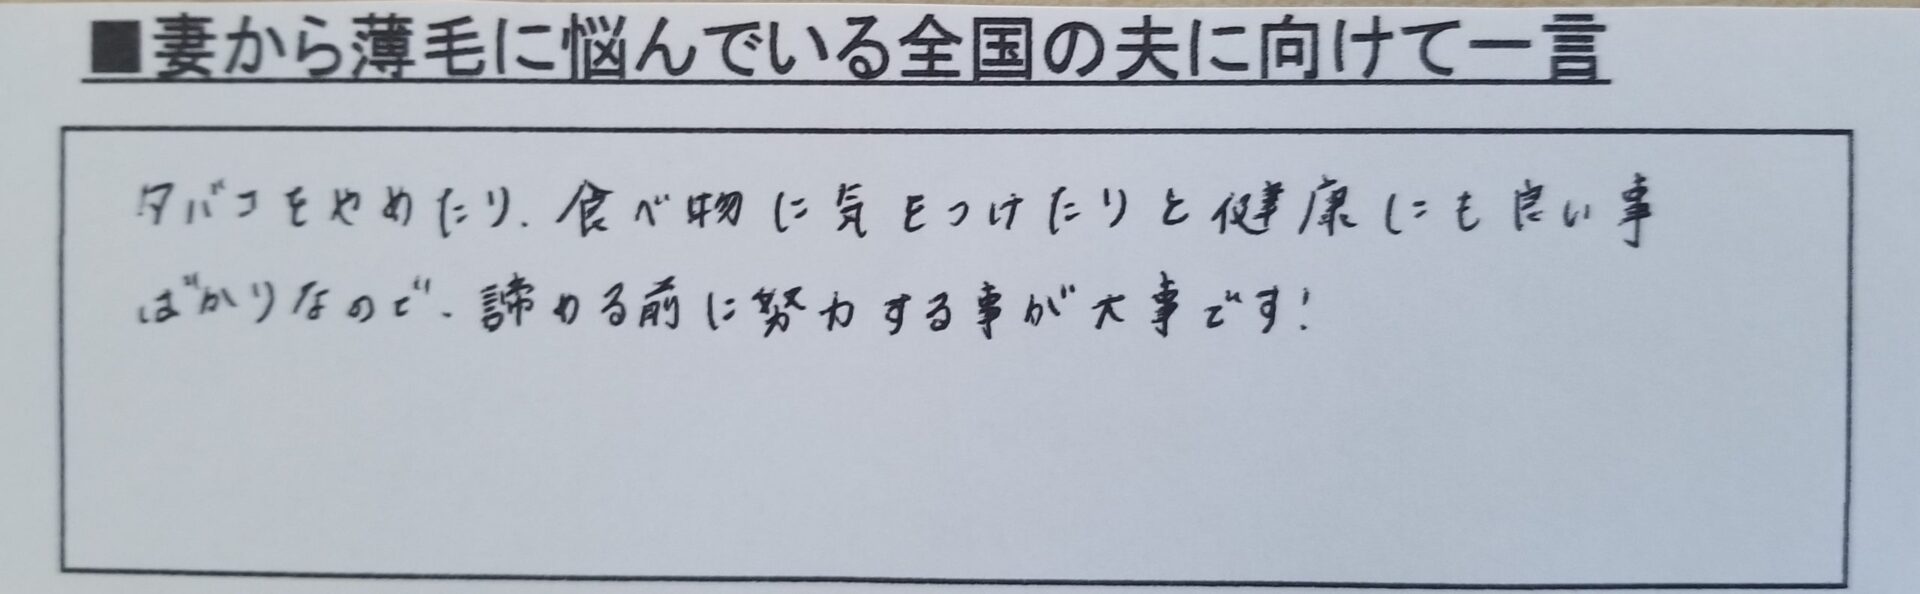 ■妻から薄毛に悩んでいる全国の夫に向けて一言
タバコをやめたり、食べ物に気をつけたりと健康にも良い事
ばかりなので、諦める前に努力する事が大事です!